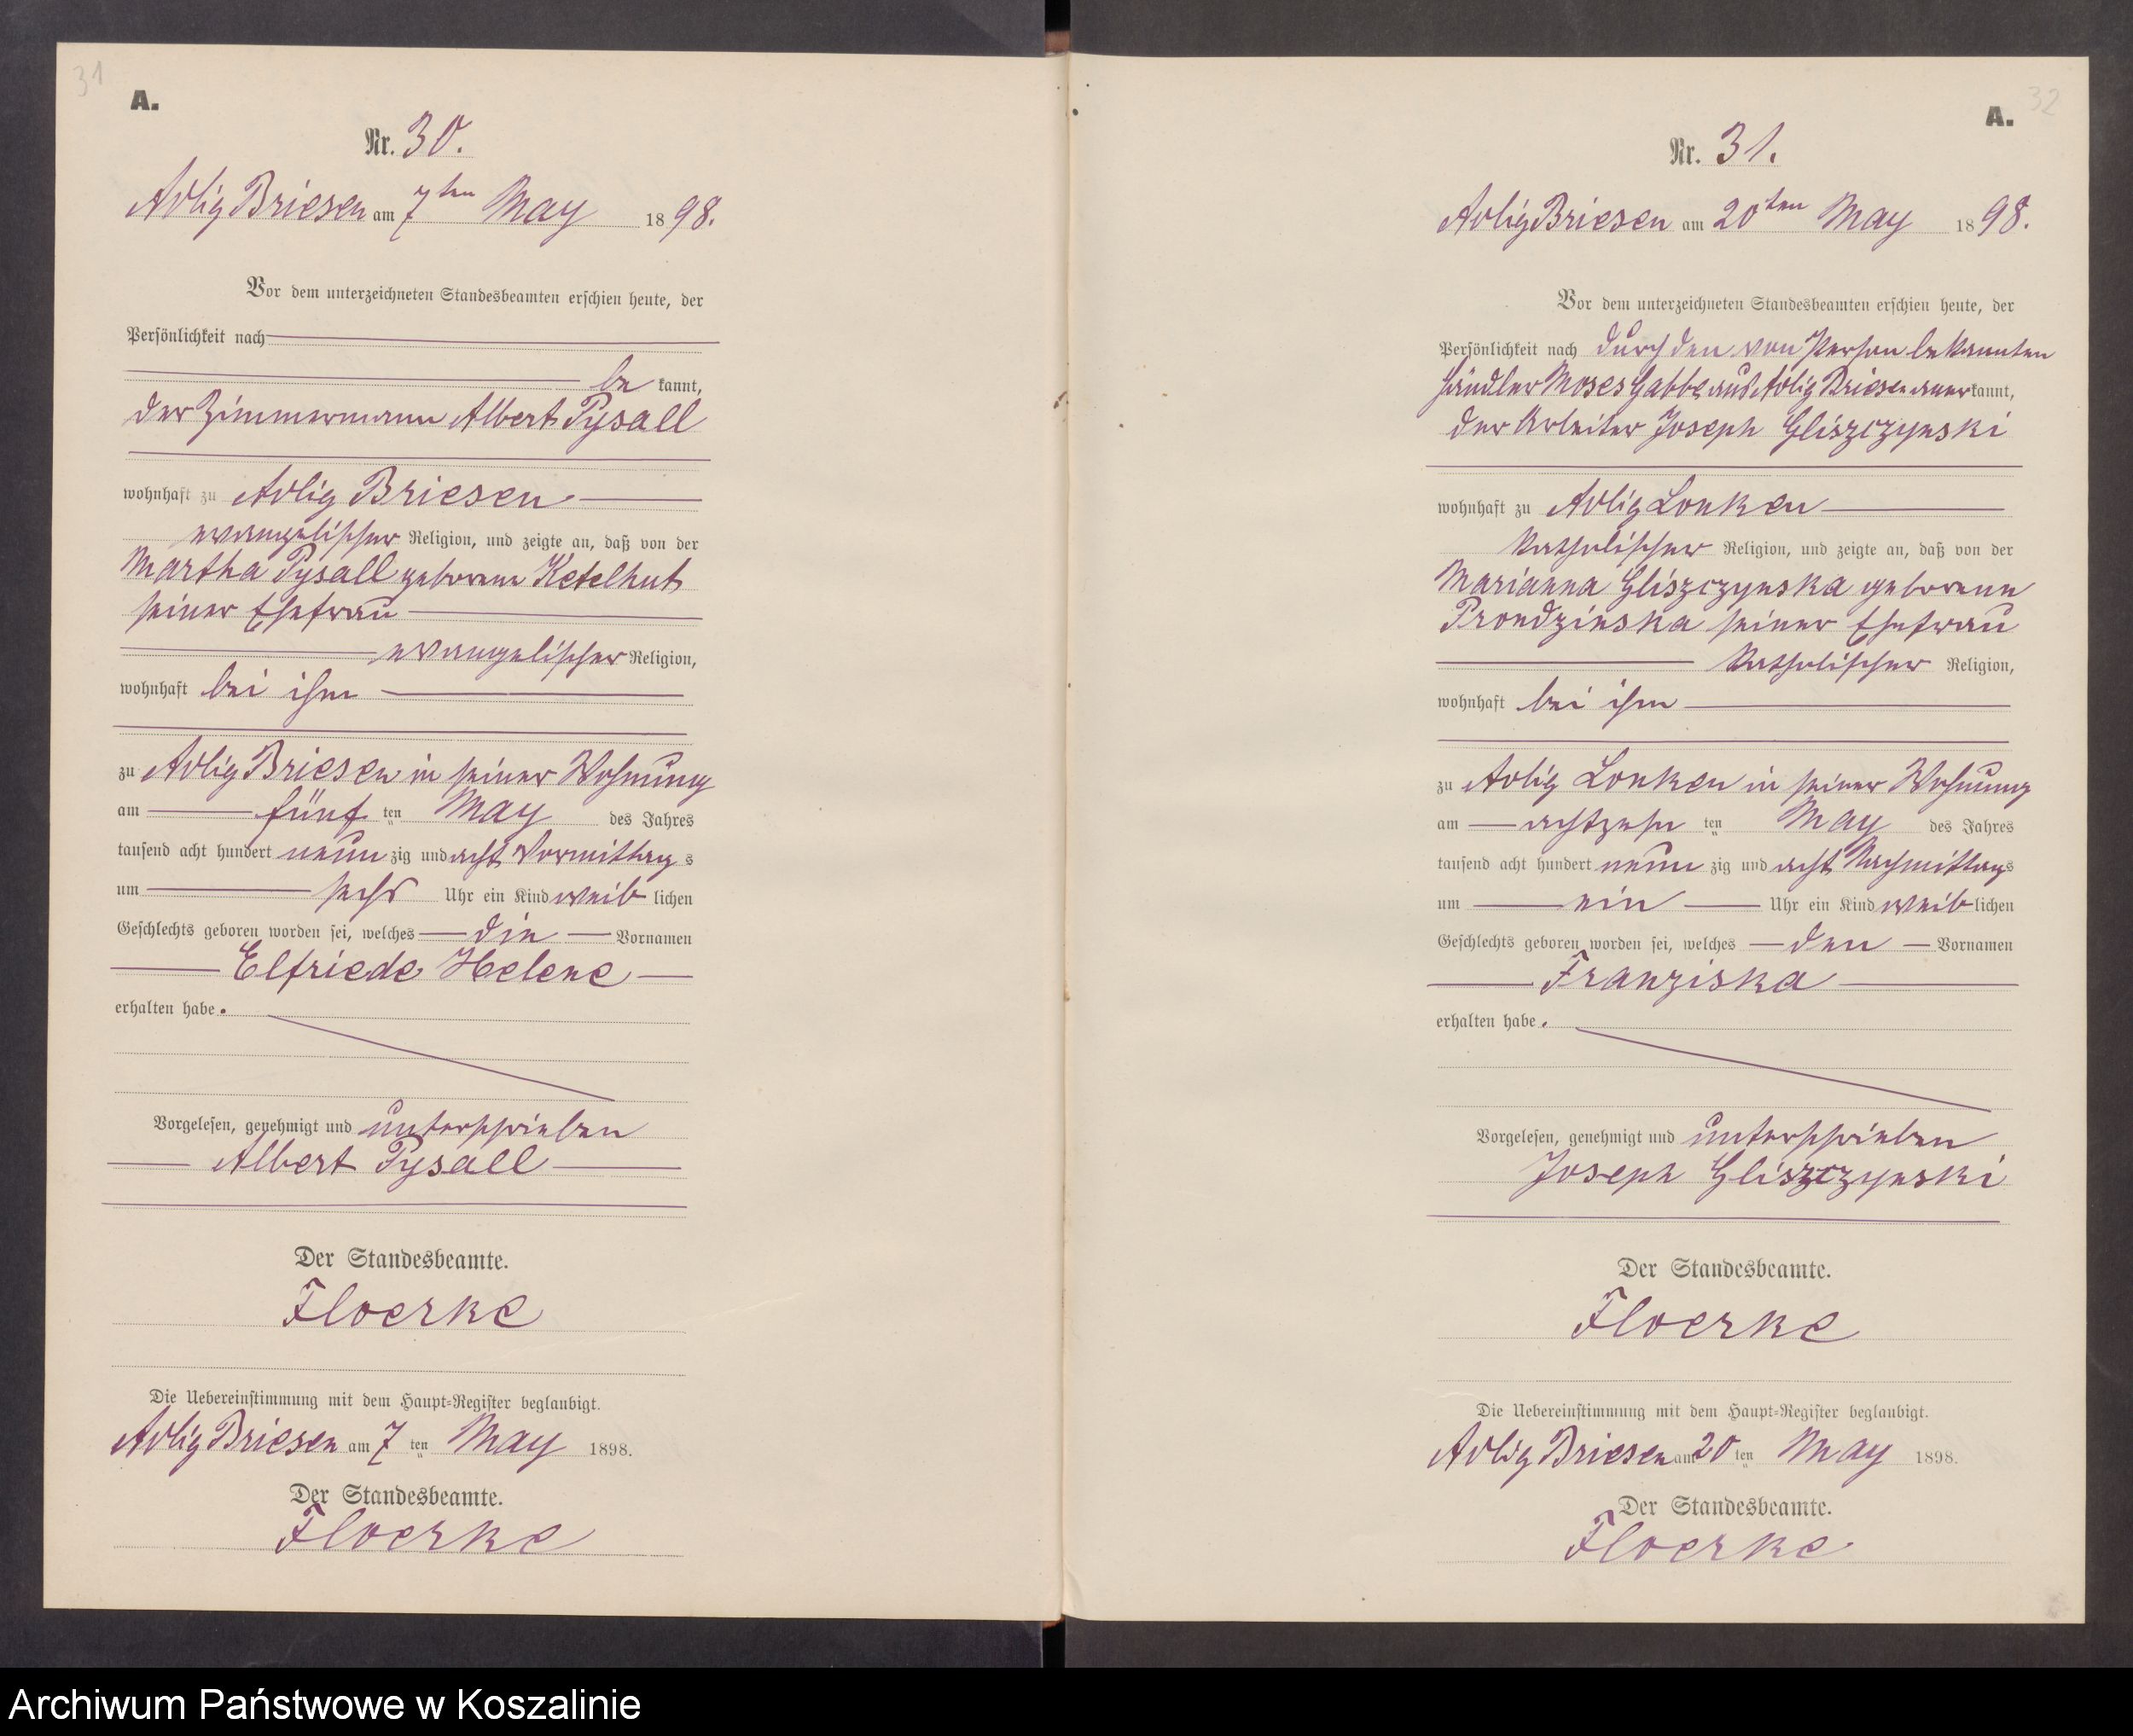 31
A.
Nr. 30.
Adlig Briesen am 7ten May 1898.
Vor dem unterzeichneten Standesbeamten erschien heute, der
Persönlichkeit nach
be kannt,
der Zimmermann Albert Pysall
wohnhaft zu Adlig Briesen
evangelischer Religion, und zeigte an, daß von der
Martha Pysall geborene Ketelhut
seiner Ehefrau
evangelischer Religion,
wohnhaft bei ihm
zu Adlig Briesen in seiner Wohnung
am fünf ten May des Jahres
tausend acht hundert neun zig und acht Vormittag s
um sechs Uhr ein Kind weib lichen
Geschlechts geboren worden sei, welches die Vornamen
Elfriede Helene
erhalten habe.
Vorgelesen, genehmigt und unterschrieben
Albert Pysall
Der Standesbeamte.
Floerke
Die Uebereinstimmung mit dem Haupt=Register beglaubigt.
Adlig Briesen am 7 ten May 1898.
Der Standesbeamte.
Floerke
32
A.
Nr. 31.
Adlig Briesen am 20ten May 1898.
Vor dem unterzeichneten Standesbeamten erschien heute, der
Persönlichkeit nach durch den von Person bekannten
Händler Moses Gabbe aus Adlig Briesen aner kannt,
der Arbeiter Joseph Gliszczynski
wohnhaft zu Adlig Lonken
katholischer Religion, und zeigte an, daß von der
Marianna Gliszczynska geborene
Prondzinska seiner Ehefrau
katholischer Religion,
wohnhaft bei ihm
zu Adlig Lonken in seiner Wohnung
am achtzehn ten May des Jahres
tausend acht hundert neun zig und acht Nachmittag s
um ein Uhr ein Kind weib lichen
Geschlechts geboren worden sei, welches den Vornamen
Franziska
erhalten habe.
Vorgelesen, genehmigt und unterschrieben
Joseph Gliszczynski
Der Standesbeamte.
Floerke
Die Uebereinstimmung mit dem Haupt=Register beglaubigt.
Adlig Briesen am 20 ten May 1898.
Der Standesbeamte.
Floerke
Archiwum Państwowe w Koszalinie